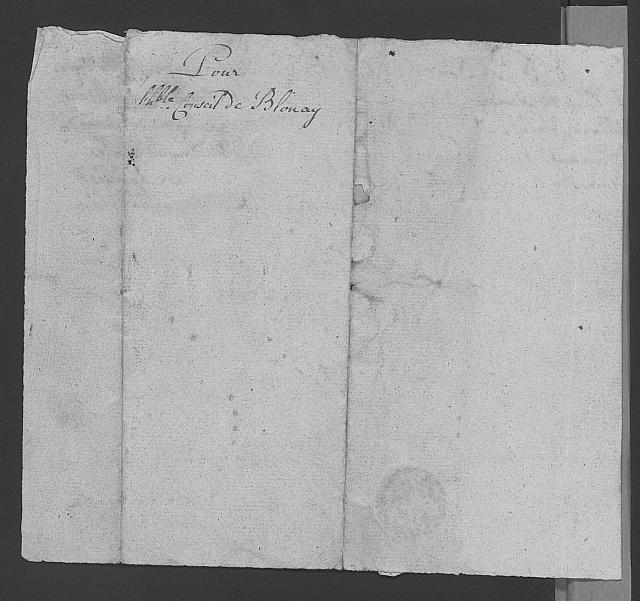 Pour
hble. Conseil De Blonay